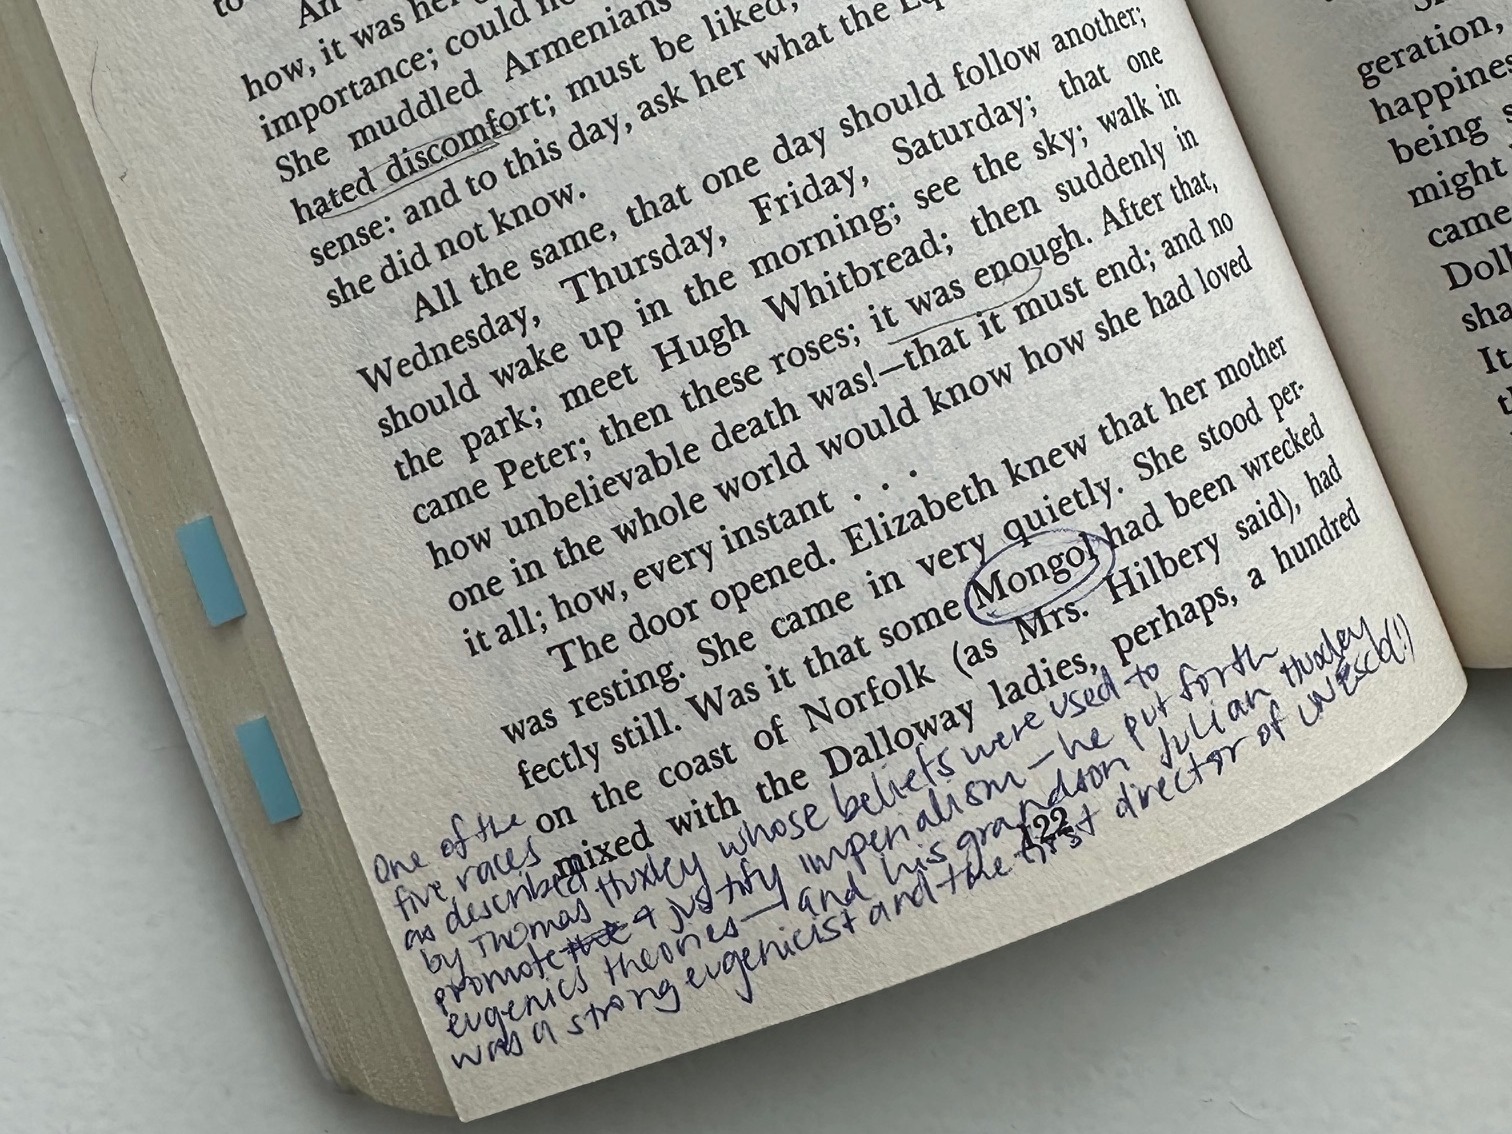 to
An
how, it was her
importance; could no
She muddled Armenians
hated discomfort; must be liked;
sense: and to this day, ask her what the Eq
she did not know.
All the same, that one day should follow another;
Wednesday, Thursday, Friday, Saturday; that one
should wake up in the morning; see the sky; walk in
the park; meet Hugh Whitbread; then suddenly in
came Peter; then these roses; it was enough. After that,
how unbelievable death was!—that it must end; and no
one in the whole world would know how she had loved
it all; how, every instant . . .
The door opened. Elizabeth knew that her mother
was resting. She came in very quietly. She stood per-
fectly still. Was it that some Mongol had been wrecked
on the coast of Norfolk (as Mrs. Hilbery said), had
mixed with the Dalloway ladies, perhaps, a hundred
122
One of the
five races
as described
by Thomas Huxley whose beliefs were used to
promote the + justify imperialism – he put forth
eugenics theories – and his grandson Julian Huxley
was a strong eugenicist and the first director of UNESCO(!)
geration,
happines
being s
might
came
Doll
sha
It
th